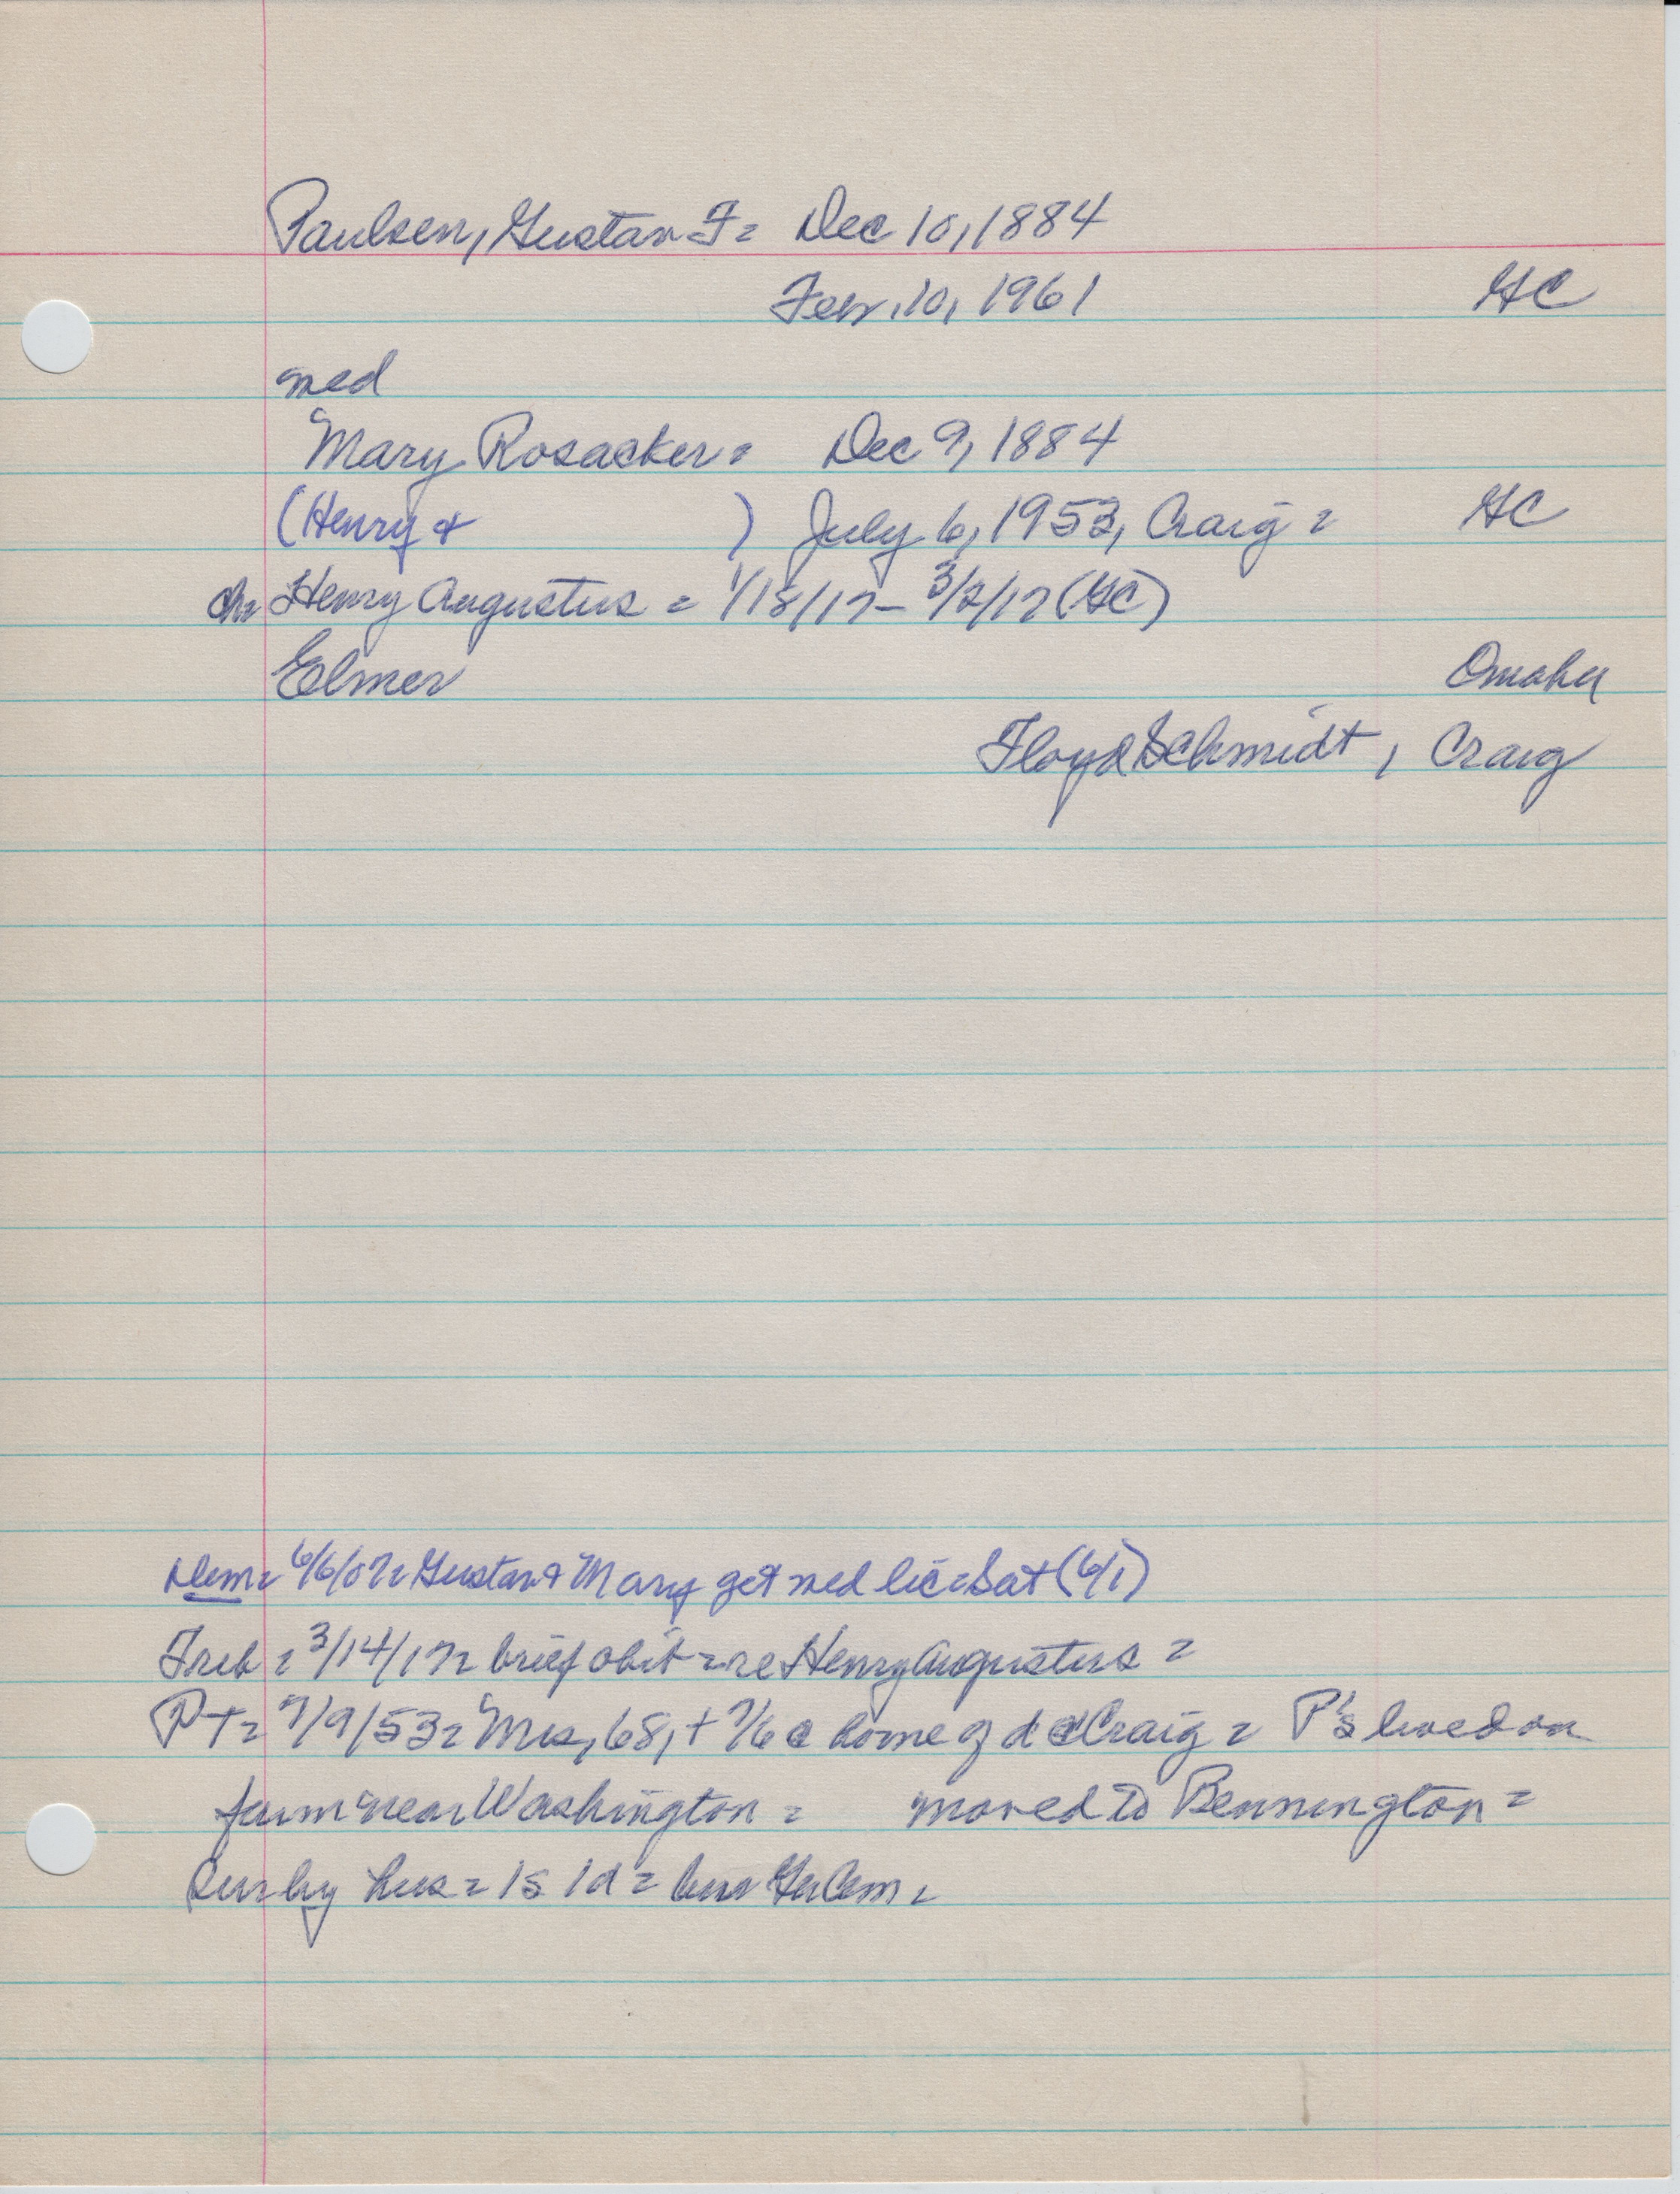 Paulsen, Gustav F = Dec 10, 1884
Feb. 10, 1961 GC
med
Mary Rosacker = Dec 9, 1884
(Henry + ) July 6, 1953, Craig = GC
ch= Henry Augustus = 1/18/17 - 3/2/17 (GC)
Elmer Omaha
Floyd Schmidt, Craig
Dem= 6/6/07= Gustav + Mary get med lic = Sat (6/1)
Trib = 3/14/17= brief obit = re Henry Augustus =
PT= 7/9/53= Mrs, 68, + 7/6 @ home of d @ Craig = P's lived on
farm near Washington = moved to Bennington =
Sur by hus = 1s 1d = bur Cem =